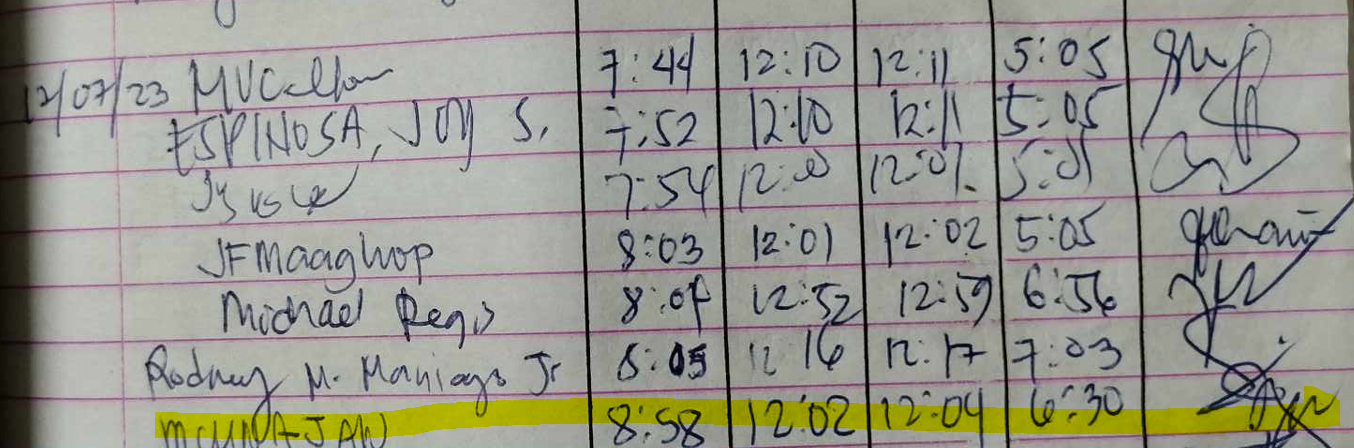 12/07/23 7:44 12:10 12:11 5:05
ESPINOSA, JOY S. 7:52 12:10 12:11 5:05
7:54 12:00 12:01 5:01
JFMaaghop 8:03 12:01 12:02 5:05
Michael Regis 8:04 12:52 12:59 6:56
Rodney M. Maniago Jr 8:05 12 16 12:17 7:03
8:58 12:02 12:04 6:30